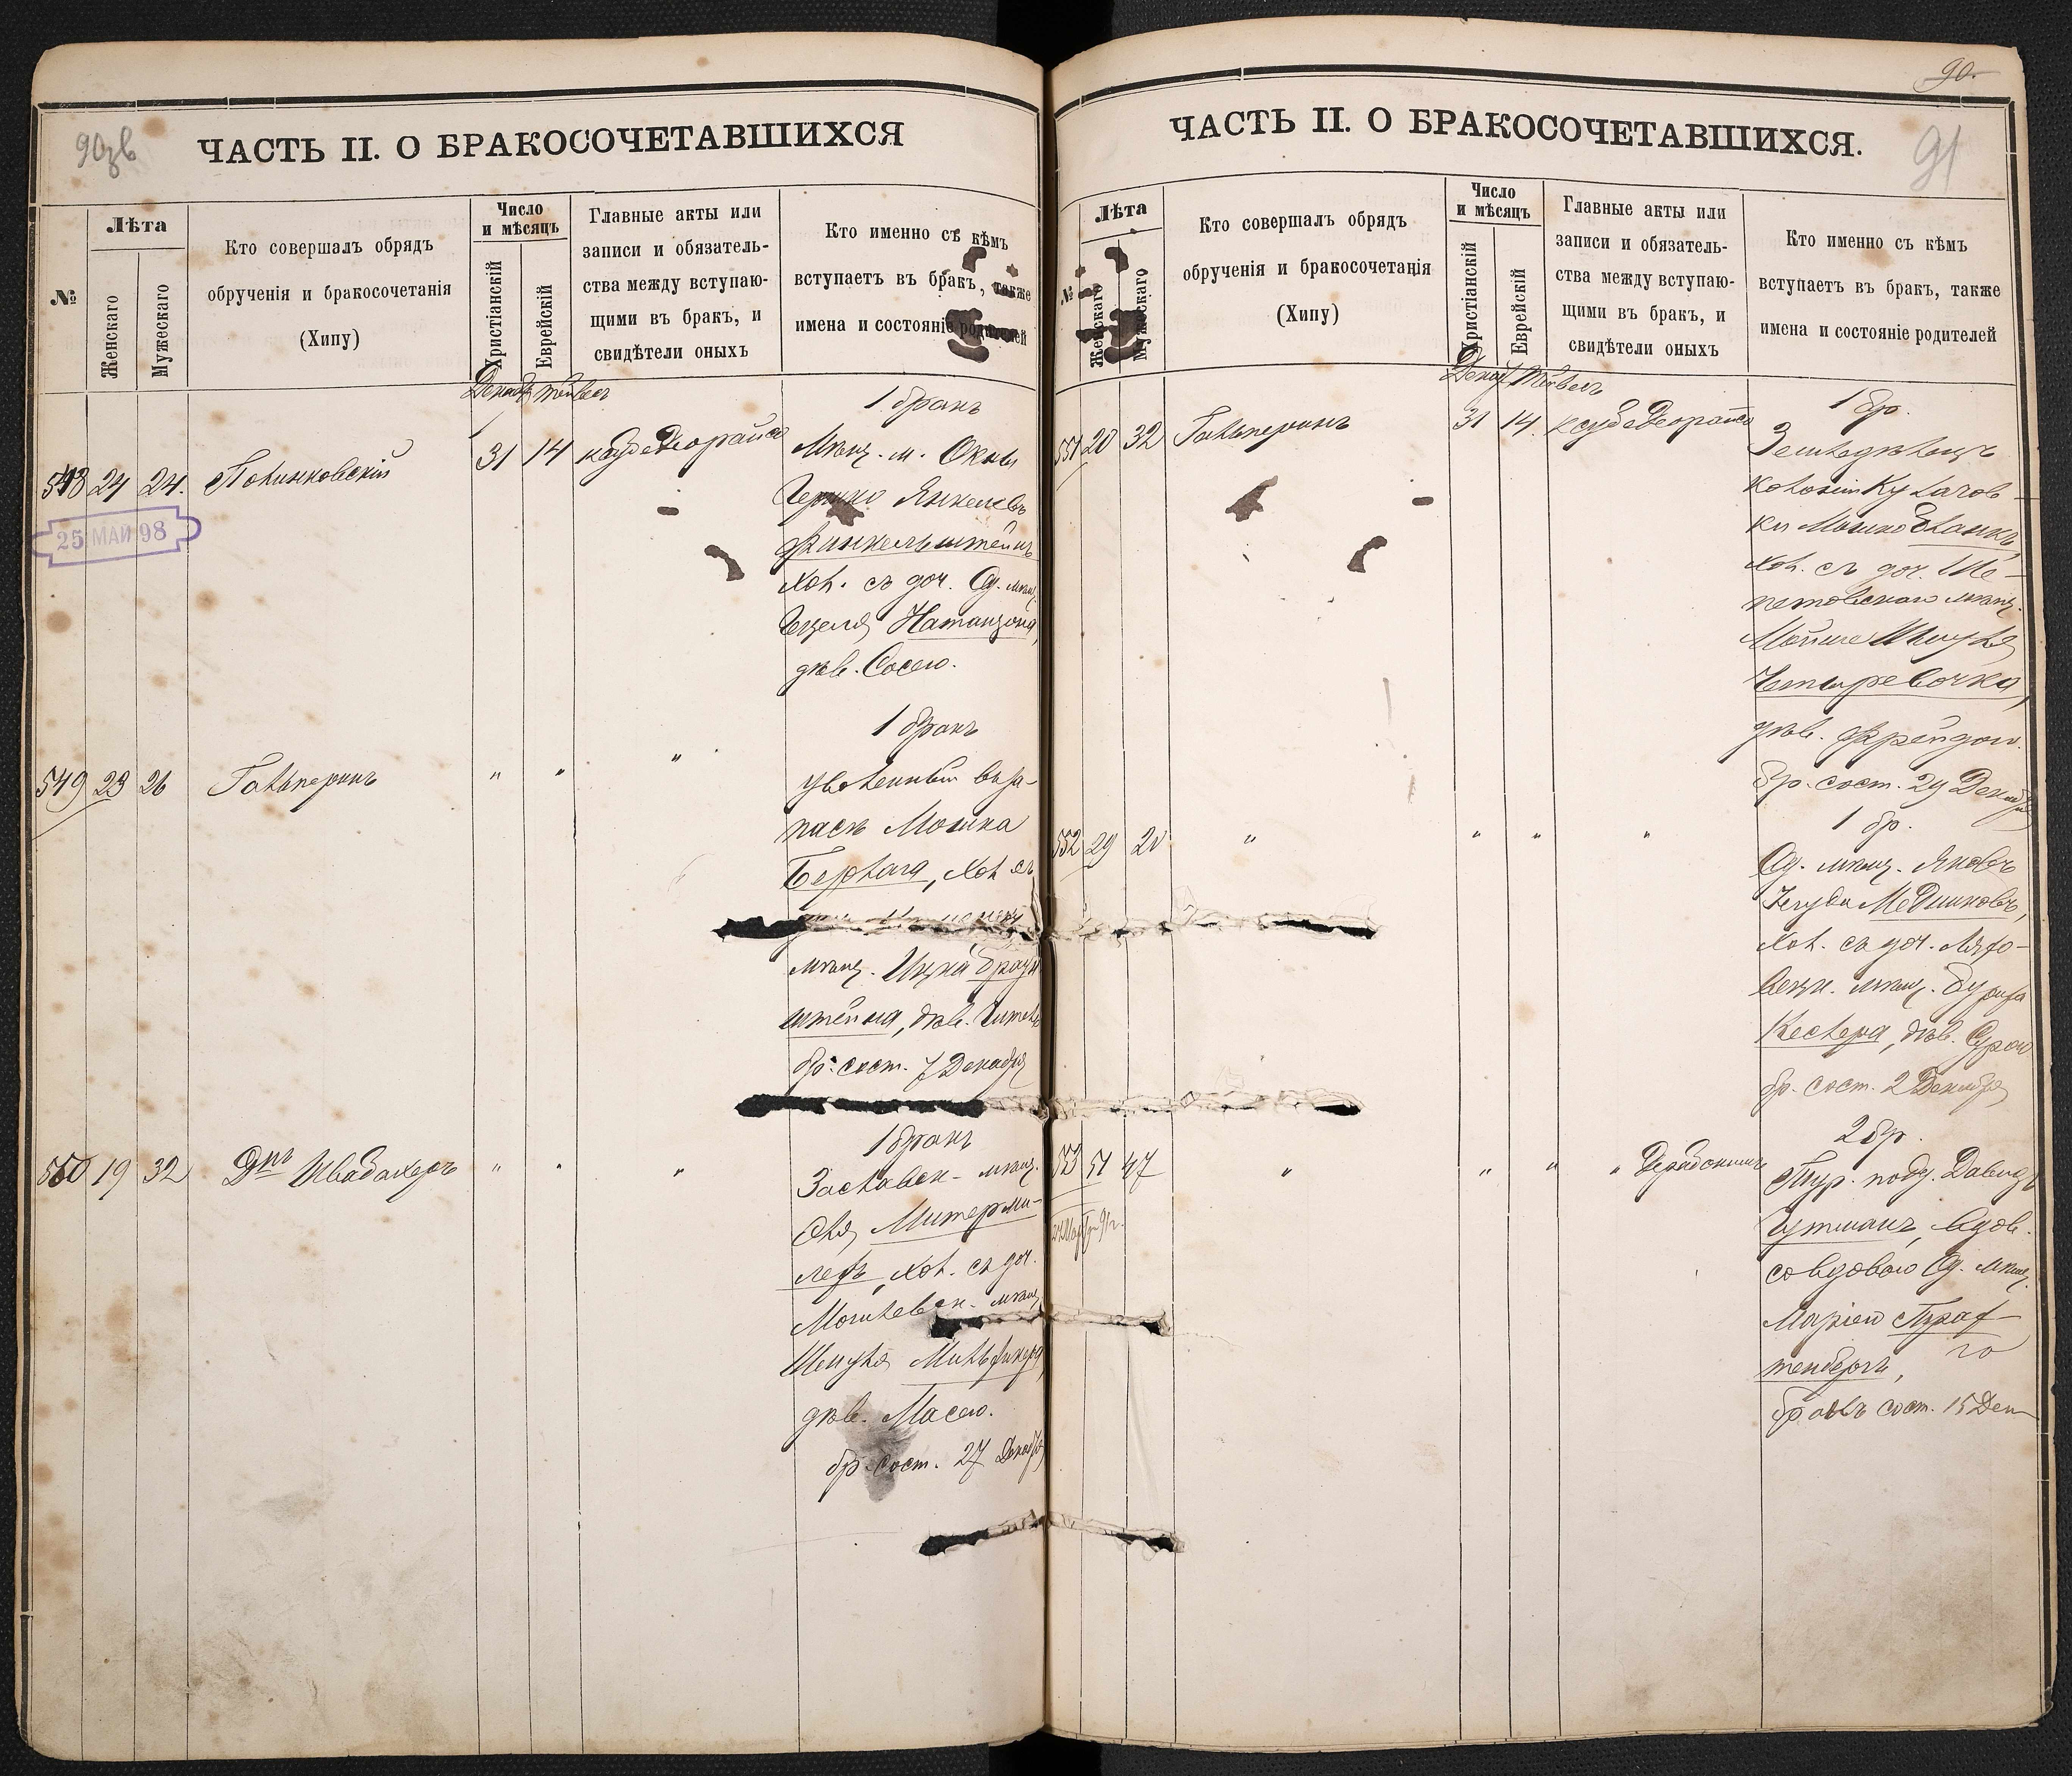 90зв
ЧАСТЬ II. О БРАКОСОЧЕТАВШИХСЯ
№
Лѣта
Женскаго
Мужескаго
Кто совершалъ обрядъ
обрученія и бракосочетанія
(Хипу)
Число
и мѣсяцъ
Христіанскій
Еврейскій
Главные акты или
записи и обязатель-
ства между вступаю-
щими въ бракъ, и
свидѣтели оныхъ
Кто именно съ кѣмъ
вступаетъ въ бракъ, также
имена и состояніе родителей
Декаб Тейвес
1 бракъ
548 24 24. Полинковскій 31 14
Мѣщ. м. Окны
Гершко Янкелевъ
Финкельштейнъ
хол. съ доч. Од. мѣщ.
Гецеля Натанзона,
дѣв. Сосею.
25 МАЙ 98
1 бракъ
549 23 26 Гальперинъ " " "
уволенный въ за-
пасъ Мошка
Берлага, хол съ
мѣщ. Ицка Браун
штейна, дѣв. Гитель
бр. сост. 7 Декабря
1 бракъ
550 19 32 Дпъ Швабахеръ " " "
Заславск. мѣщ.
Митерми-
леръ, хол. съ доч.
Могилевск. мѣщ.
Шмуля Мильфикера
дѣв. Масею.
бр. сост. 27 Декабр
90.
91
ЧАСТЬ II. О БРАКОСОЧЕТАВШИХСЯ.
№
Лѣта
Женскаго
Мужескаго
Кто совершалъ обрядъ
обрученія и бракосочетанія
(Хипу)
Число
и мѣсяцъ
Христіанскій
Еврейскій
Главные акты или
записи и обязатель-
ства между вступаю-
щими въ бракъ, и
свидѣтели оныхъ
Кто именно съ кѣмъ
вступаетъ въ бракъ, также
имена и состояніе родителей
Декаб Тейвесъ
1 бр.
551 20 32 Гальперинъ 31 14
Земледѣлецъ
колоніи Кулачов-
ки Мошко Бланкъ
хол. съ доч. Ше-
петовскаго мѣщ.
Мойше Шмуля
Четыревочка,
дѣв. Фрейдою.
бр. сост. 29 Декабря
1 бр.
552 29 20 " " " "
Од. мѣщ. Яковъ
Меѣниковъ,
хол. съ доч. Ляхо-
вецк. мѣщ.
Кеслера, дѣв. Сурою
бр. сост. 2 Декабря
2 бр.
553 51 47 " " " "
Тур. подд. Давидъ
Гутманъ, вдов.
со вдовою Од. мѣщ.
Маріею
тенбергъ,
го
бракъ сост. 15 Дек